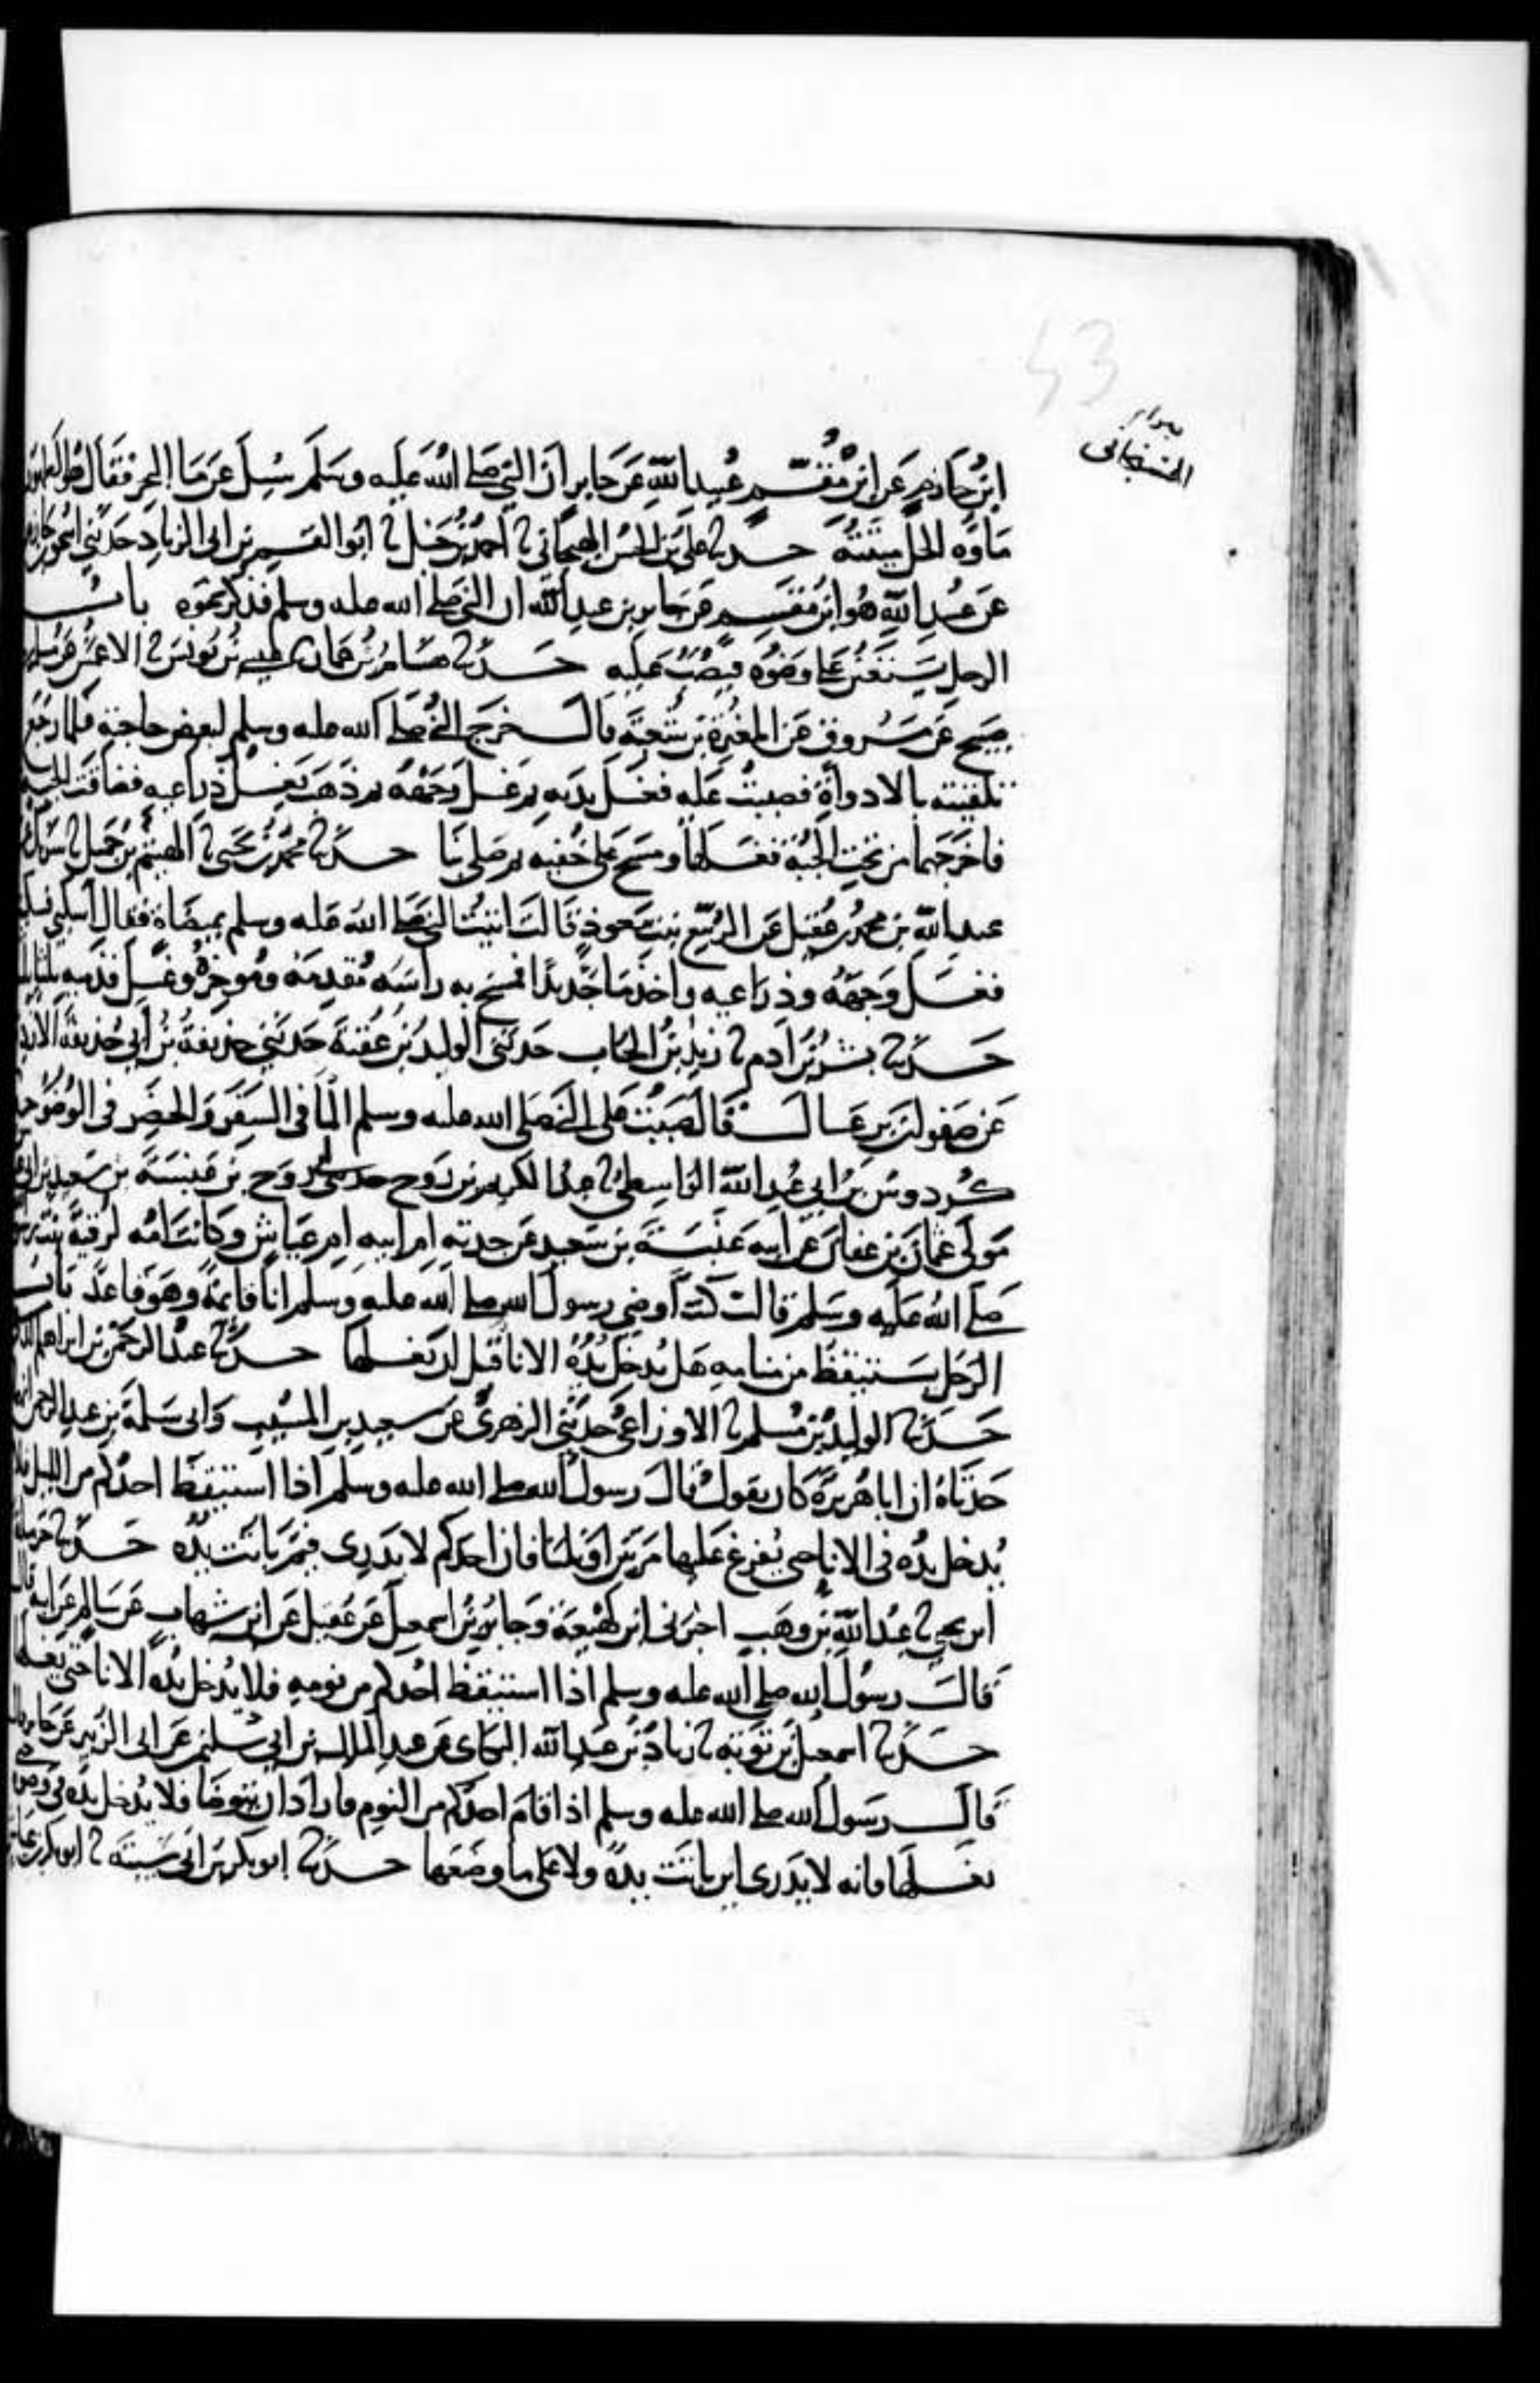 53
الهسنجاني
ابن حازم عن ابن مقسم عبيد الله عن جابر ان النبي صلى الله عليه وسلم سيل عن ما البحر فقال هو الطهور
ماوه الحل ميتته حدثنا علي بن الحسن الهسجاني ثا احمد بن حنبل ثا ابو القسم بن ابي الزناد حدثني اسحق بن حازم
عن عبيد الله هو ابن مقسم عن جابر بن عبد الله ان النبي صلى الله عليه وسلم فذكر نحوه باب
الرجل يستعين على وضوه فيصب عليه حدثنا هشام بن عمار ثا عيسى بن يونس ثا الاعمش عن مسلم بن
صبيح عن مسروق عن المغيرة بن شعبة قال خرج النبي صلى الله عليه وسلم لبعض حاجته فلما رجع
تلقيته بالادواة فصببت عليه فغسل يديه ثم غسل وجهه ثم ذهب يغسل ذراعيه فضاقت الجبة
فاخرجهما من تحت الجبة فغسلهما ومسح على خفيه ثم صلى بنا حدثنا محمد بن يحيى ثا الهيثم بن جميل ثا شريك عن
عبد الله بن محمد بن عقيل عن الربيع بنت معوذ قالت اتيت النبي صلى الله عليه وسلم بميضاة فقال اسكبي فسكبت
فغسل وجهه وذراعيه واخذ ما جديدا فمسح به راسه مقدمه وموخره وغسل قدميه ثلثا ثلثا
حدثنا بشر بن ادم ثا زيد بن الحباب حدثني الوليد بن عقبة حدثني حذيفة بن ابي حذيفة الازدي
عن صفوان بن عسال قال صببت على النبي صلى الله عليه وسلم الما في السفر والحضر في الوضو حدثنا
كردوس بن ابي عبد الله الواسطي ثا عبد الكريم بن روح حدثني ابي روح بن عنبسة بن سعيد بن ابي عياش
مولى عثمان بن عفان عن ابيه عنبسة بن سعيد عن جدته ام ابيه ام عياش وكانت امه لرقية بنت رسول الله
صلى الله عليه وسلم قالت كنت اوضي رسول الله صلى الله عليه وسلم انا قايمة وهو قاعد باب
الرجل يستيقظ من منامه هل يدخل يده الانا قبل ان يغسلها حدثنا عبد الرحمن بن ابراهيم الدمشقي
حدثنا الوليد بن مسلم ثا الاوزاعي حدثني الزهري عن سعيد بن المسيب وابي سلمة بن عبد الرحمن انهما
حدثاه ان ابا هريرة كان يقول قال رسول الله صلى الله عليه وسلم اذا استيقظ احدكم من الليل فلا
يدخل يده في الانا حتى يفرغ عليها مرتين او ثلثا فان احدكم لا يدري فيم باتت يده حدثنا حرملة
ابن يحيى ثا عبد الله بن وهب اخبرني ابن لهيعة وجابر بن اسمعيل عن عقيل عن ابن شهاب عن سالم عن ابيه قال
قال رسول الله صلى الله عليه وسلم اذا استيقظ احدكم من نومه فلا يدخل يده الانا حتى يغسلها
حدثنا اسمعيل بن توبة ثا زياد بن عبد الله البكاي عن عبد الملك بن ابي سليمن عن ابي الزبير عن جابر قال
قال رسول الله صلى الله عليه وسلم اذا قام احدكم من النوم فاراد ان يتوضا فلا يدخل يده في وضوه حتى
يغسلها فانه لا يدري اين باتت يده ولا على ما وضعها حدثنا ابو بكر بن ابي شيبة ثا ابو بكر بن عياش